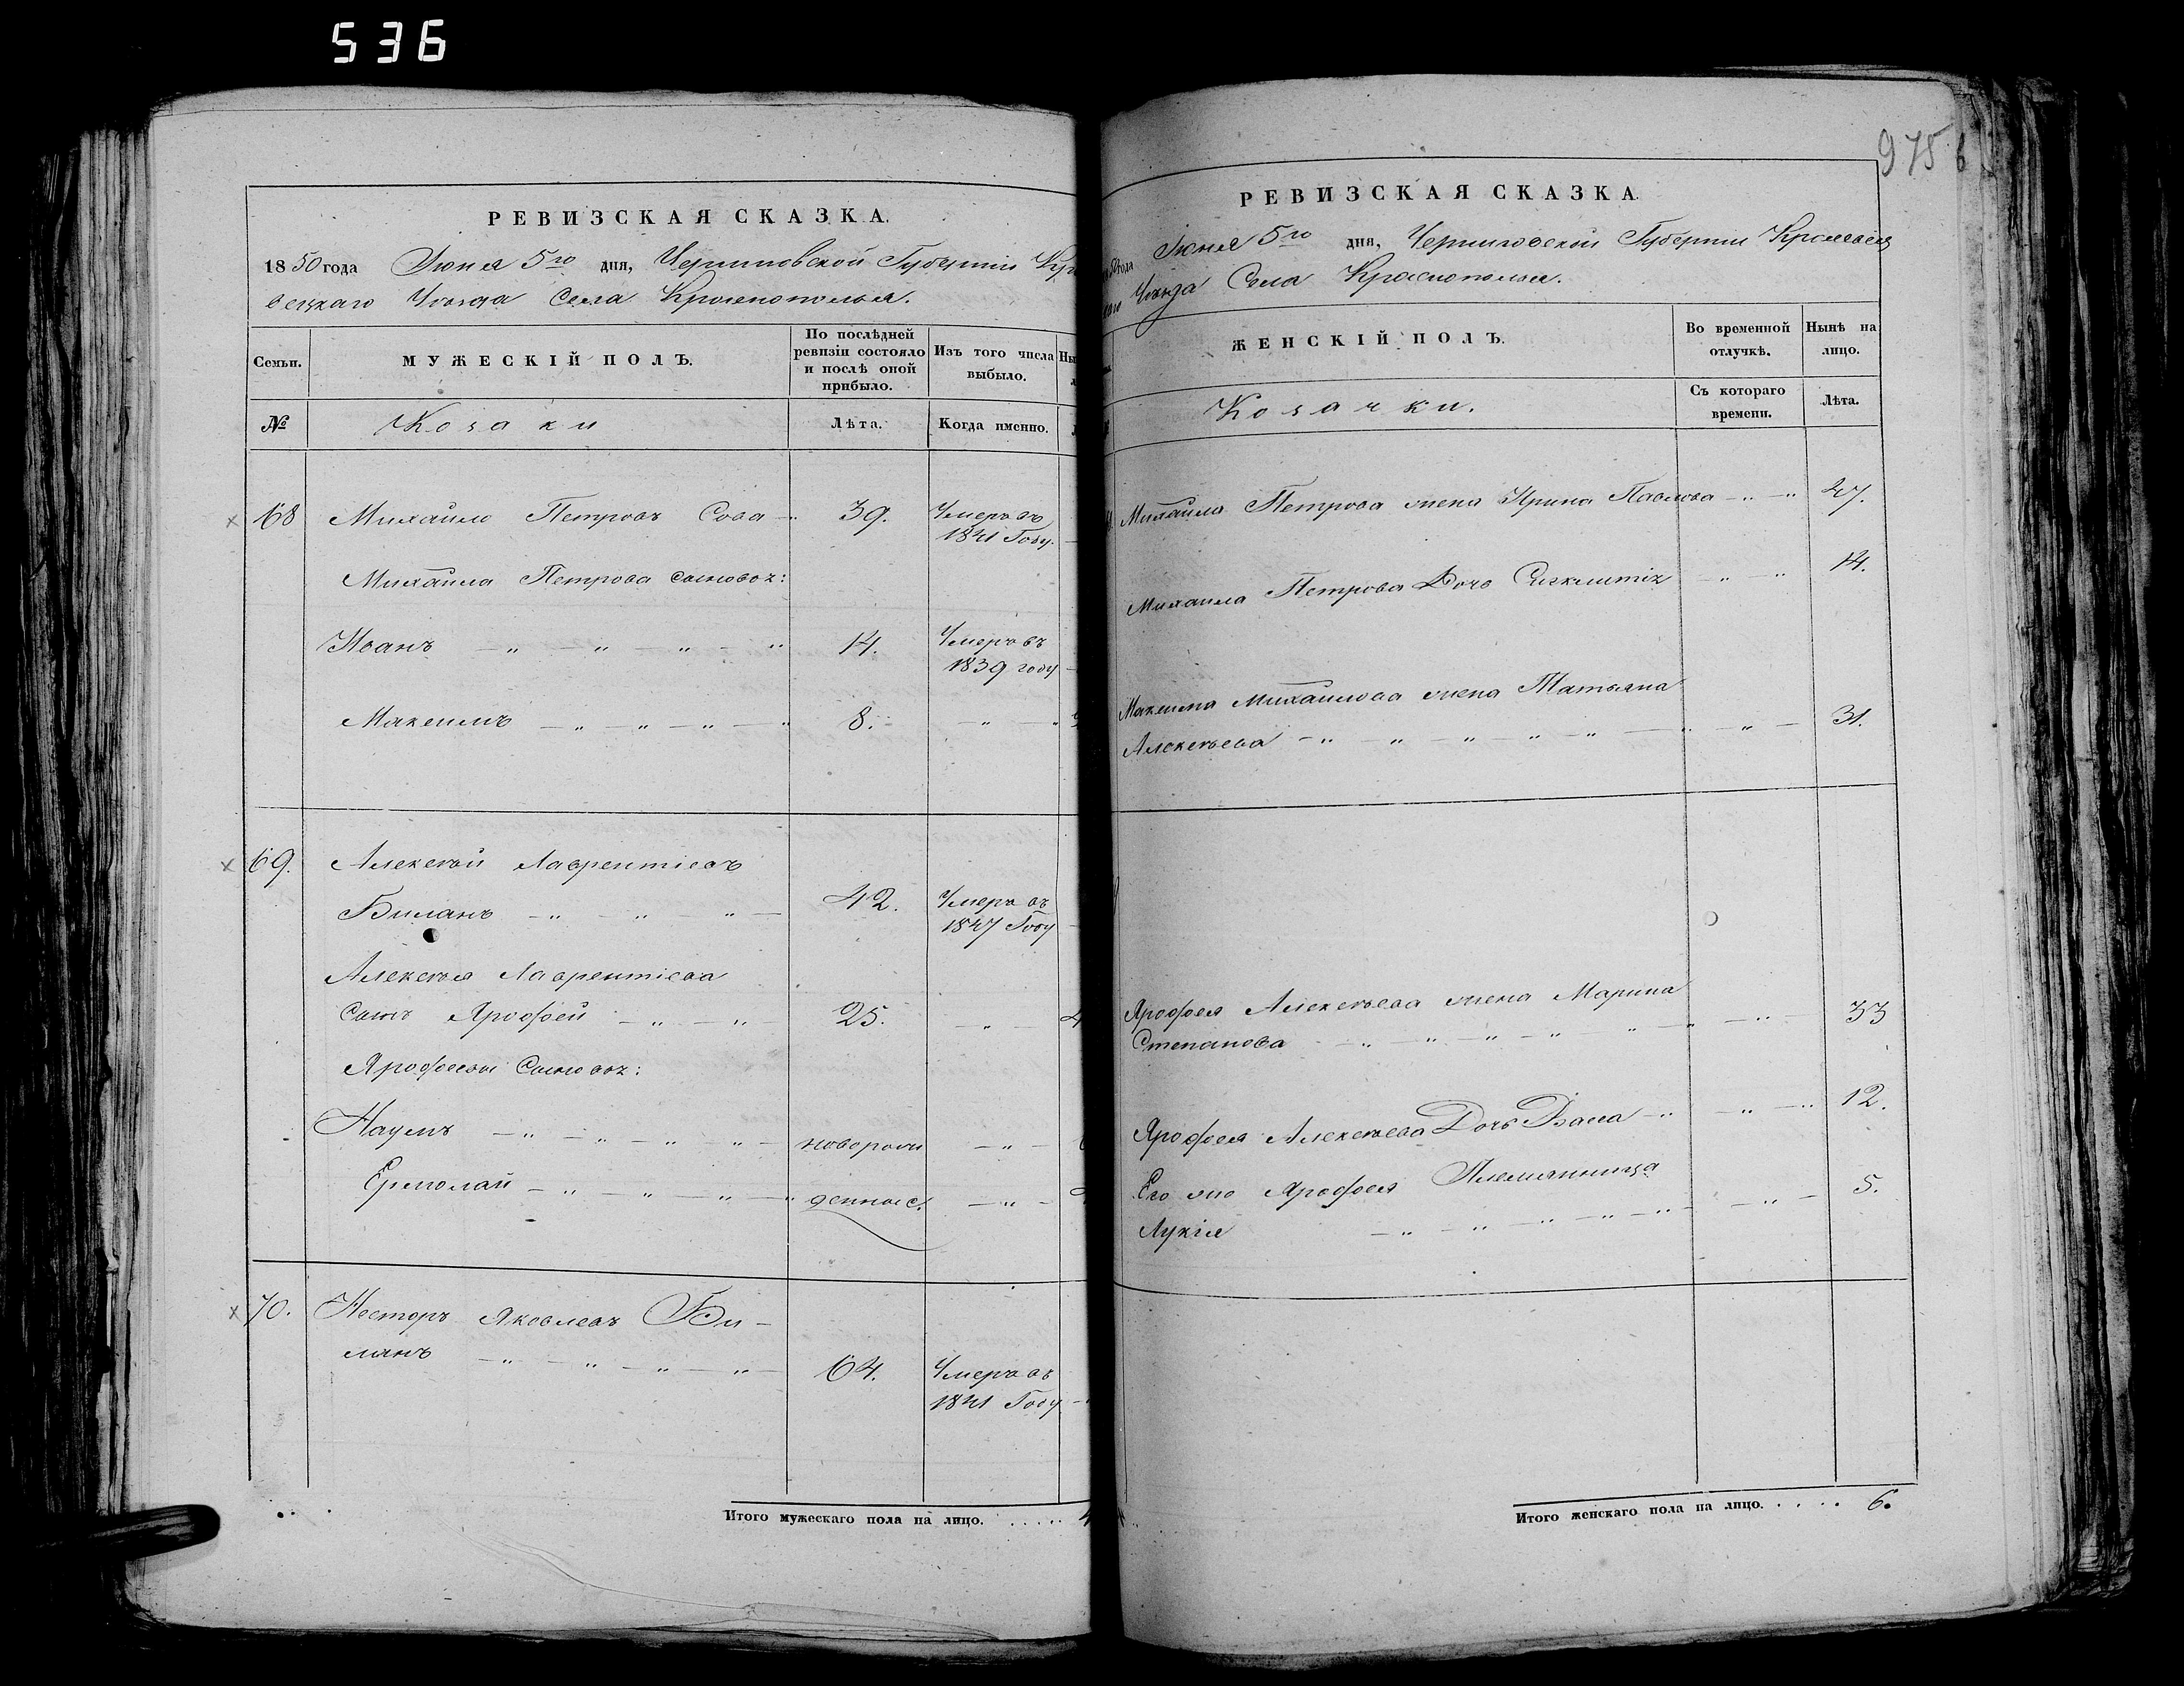 536
РЕВИЗСКАЯ СКАЗКА.
1850 года Июня 5го дня, Черниговской Губерніи Кр
вецкаго Уѣзда Села Краснополья.
Семьи.
МУЖЕСКІЙ ПОЛЪ.
По послѣдней ревизіи состояло и послѣ оной прибыло.
Изъ того числа выбыло.
№
Козаки
Лѣта.
Когда именно.
68 Михайло Петровъ Сова 39. Умеръ въ
1841 Году.
Михайла Петрова сыновья:
Иванъ 14. Умеръ въ
1839 году
Максимъ 8.
69. Алексѣй Лаврентіевъ
Биланъ 42. Умеръ въ
1847 Году
Алексѣя Лаврентіева
Сынъ Ярофѣй 25.
Ярофѣевы Сыновья:
Наумъ новорож
Ермолай денные.
70. Несторъ Яковлевъ Би-
ланъ 64. Умеръ въ
1841 Году
Итого мужескаго пола на лицо.
975
РЕВИЗСКАЯ СКАЗКА
года Июня 5го дня, Черниговской Губерніи Кролевец
каго Уѣзда Села Краснополья.
ЖЕНСКІЙ ПОЛЪ.
Во временной отлучкѣ.
Нынѣ на лицо.
Козачки.
Съ котораго времени.
Лѣта.
Михайла Петрова жена Ирина Павлова 47.
Михайла Петрова Дочь 14.
Максима Михайлова жена Татьяна
Алексѣева 31.
Ярофѣя Алексѣева жена Марина
Степанова 33
Ярофѣя Алексѣева Дочь 12.
Его же Ярофѣя Племянница 5.
Лукія
Итого женскаго пола на лицо. 6.